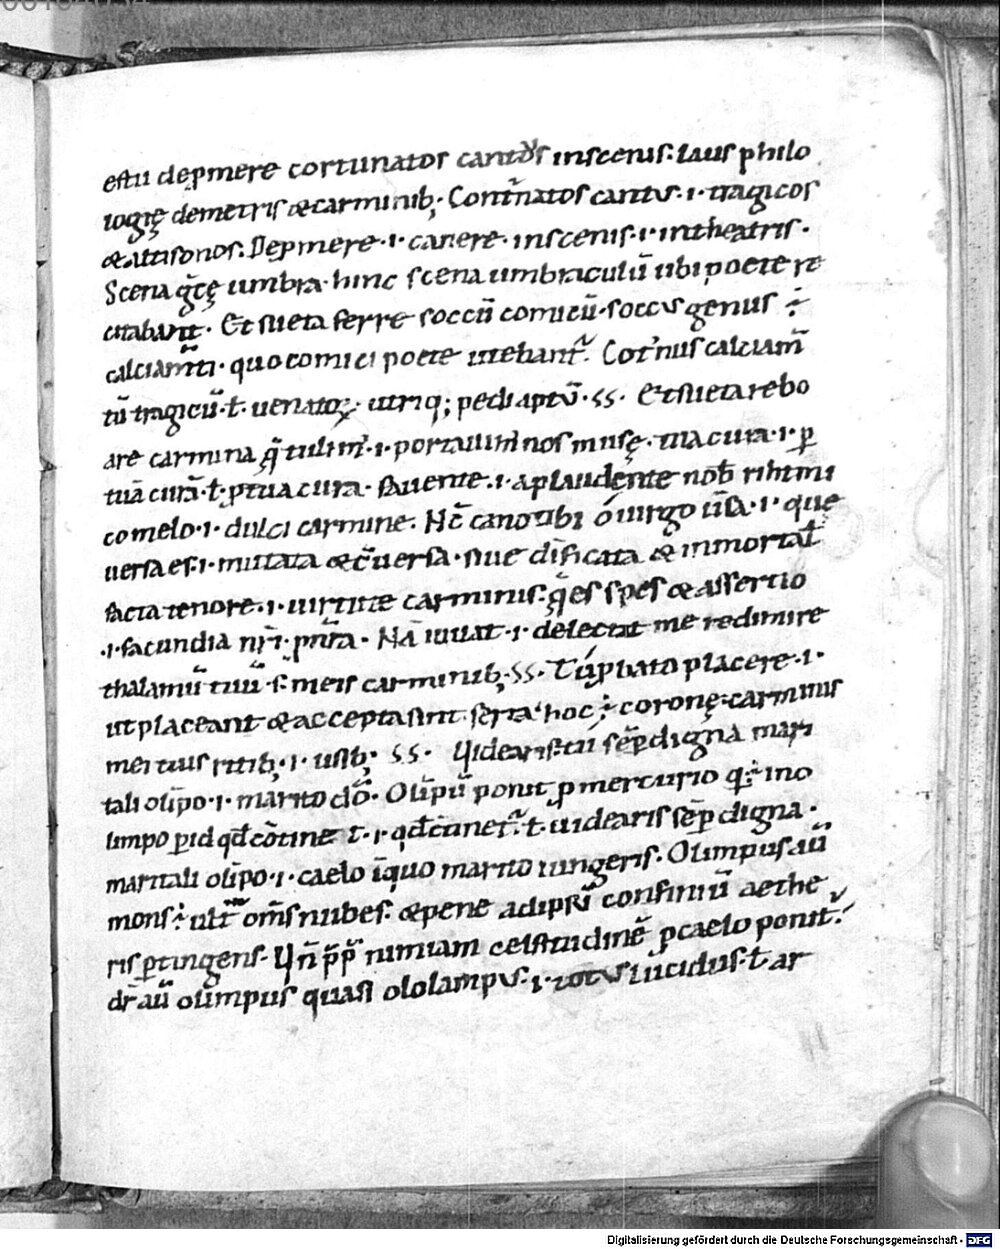 estu depmere cortunatos cantus inscenis. laus philo
logię demetris & carminib; Cont̄natos cantus .i. tragicos
& altisonos. Depmere .i. canere. inscenis .i. intheatris.
Scena gc̄ę umbra. hinc scena umbraculū ubi poete re
citabant. Et sueta ferre soccū comicū. soccus genus ÷
calciam̄ti. quo comici poete utebant̄. Cot̄nus calciam̄
tū tragicū. ł. uenatoꝝ. utriq; pedi aptū. SS. Et sueta rebo
are carmina q̄ tulim̄ .i. portauim̄ nos musę. tua cura .i. ꝑ
tuā curā. ł. ꝓ tua cura. fauente .i. aplaudente nob̄ rithmi
co melo .i. dulci carmine. Nc̄ cano tibi ó uirgo ūsa .i. que
uersa es .i. mutata & c̄uersa. siue dīficata & inmortał
facta tenore .i. uirtute carminis. q̄ es spes & assertio
.i. facundia nr̄i. pm̄ra. Nā iuuat .i. delectat me redimire
thalamū tuū .s. meis carminib; SS. Tū ꝓbato placere .i.
ut placeant & accepta sint serta hoc ÷ coronę carminis
mei tuis ritib; .i. usib; SS. Videaris tū sēꝑ digna mari
tali olīpo .i. marito dō. Olīpū ponit ꝓ mercurio q̄ ÷ in o
limpo ꝑ id qđ cōtinet .i. qđ c̄tinet̄. ł. uidearis sēꝑ digna.
maritali olīpo .i. caelo īquo marito iungeris. Olimpus aū
mons ÷ ult̄ om̄s nubes. & pene adipsū confiniū aethe
ris ꝑtingens. Vn̄ ꝓpt̄ nimiam celsitudinē ꝓ caelo ponit̄.
dr̄ aū olimpus quasi ololampus .i. totus lucidus. ł. ar
Digitalisierung gefördert durch die Deutsche Forschungsgemeinschaft - DFG